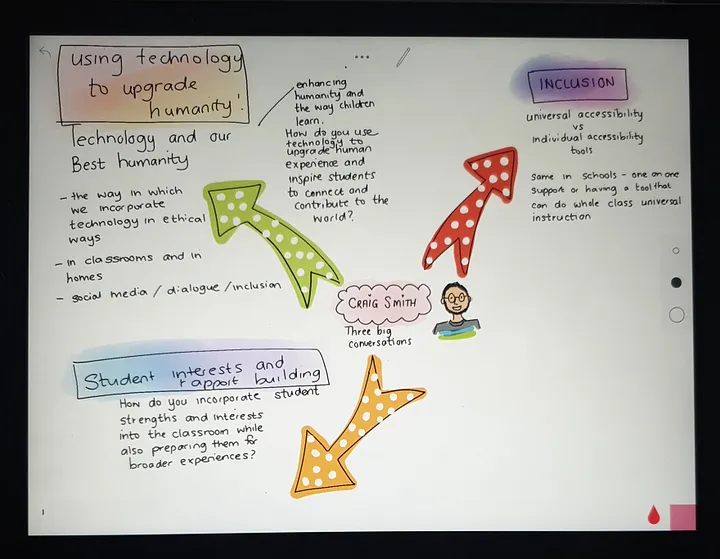 using technology
to upgrade
humanity!
Technology and our
Best humanity
- the way in which
we incorporate
technology in ethical
ways
- in classrooms and in
homes
- social media / dialogue / inclusion
enhancing
humanity and
the way children
learn.
How do you use
technology to
upgrade human
experience and
inspire students
to connect and
contribute to the
world?
INCLUSION
universal accessibility
vs
individual accessibility
tools
Same in schools - one on one
support or having a tool that
can do whole class universal
instruction
CRAIG SMITH
Three big
conversations
Student interests and
rapport building
How do you incorporate student
strengths and interests
into the classroom while
also preparing them for
broader experiences?
1